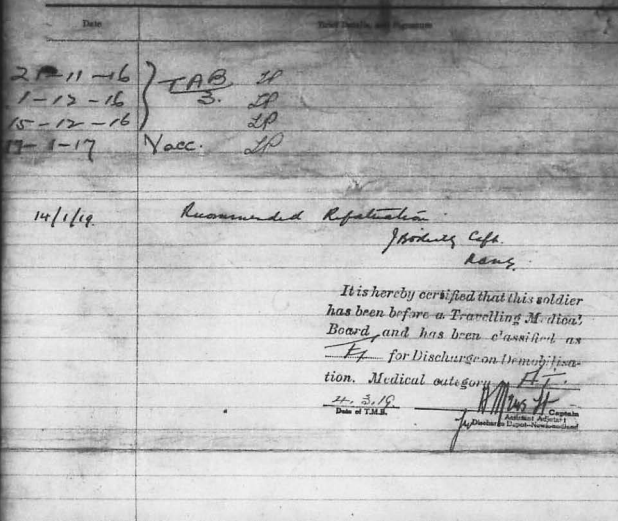 Date Brief Details, and Signature
21-11-16 TAB LP
1-12-16 3. LP
15-12-16 LP
17-1-17 Vacc. LP
14/1/19. Recommended Repatriation
Capt.
RAMC.
It is hereby certified that this soldier
has been before a Travelling Medical
Board, and has been classified as
for Discharge on Demobilisa-
tion. Medical category
4.3.19
Date of T.M.B. Captain
Assistant Adjutant
Discharge Depot-Newfoundland